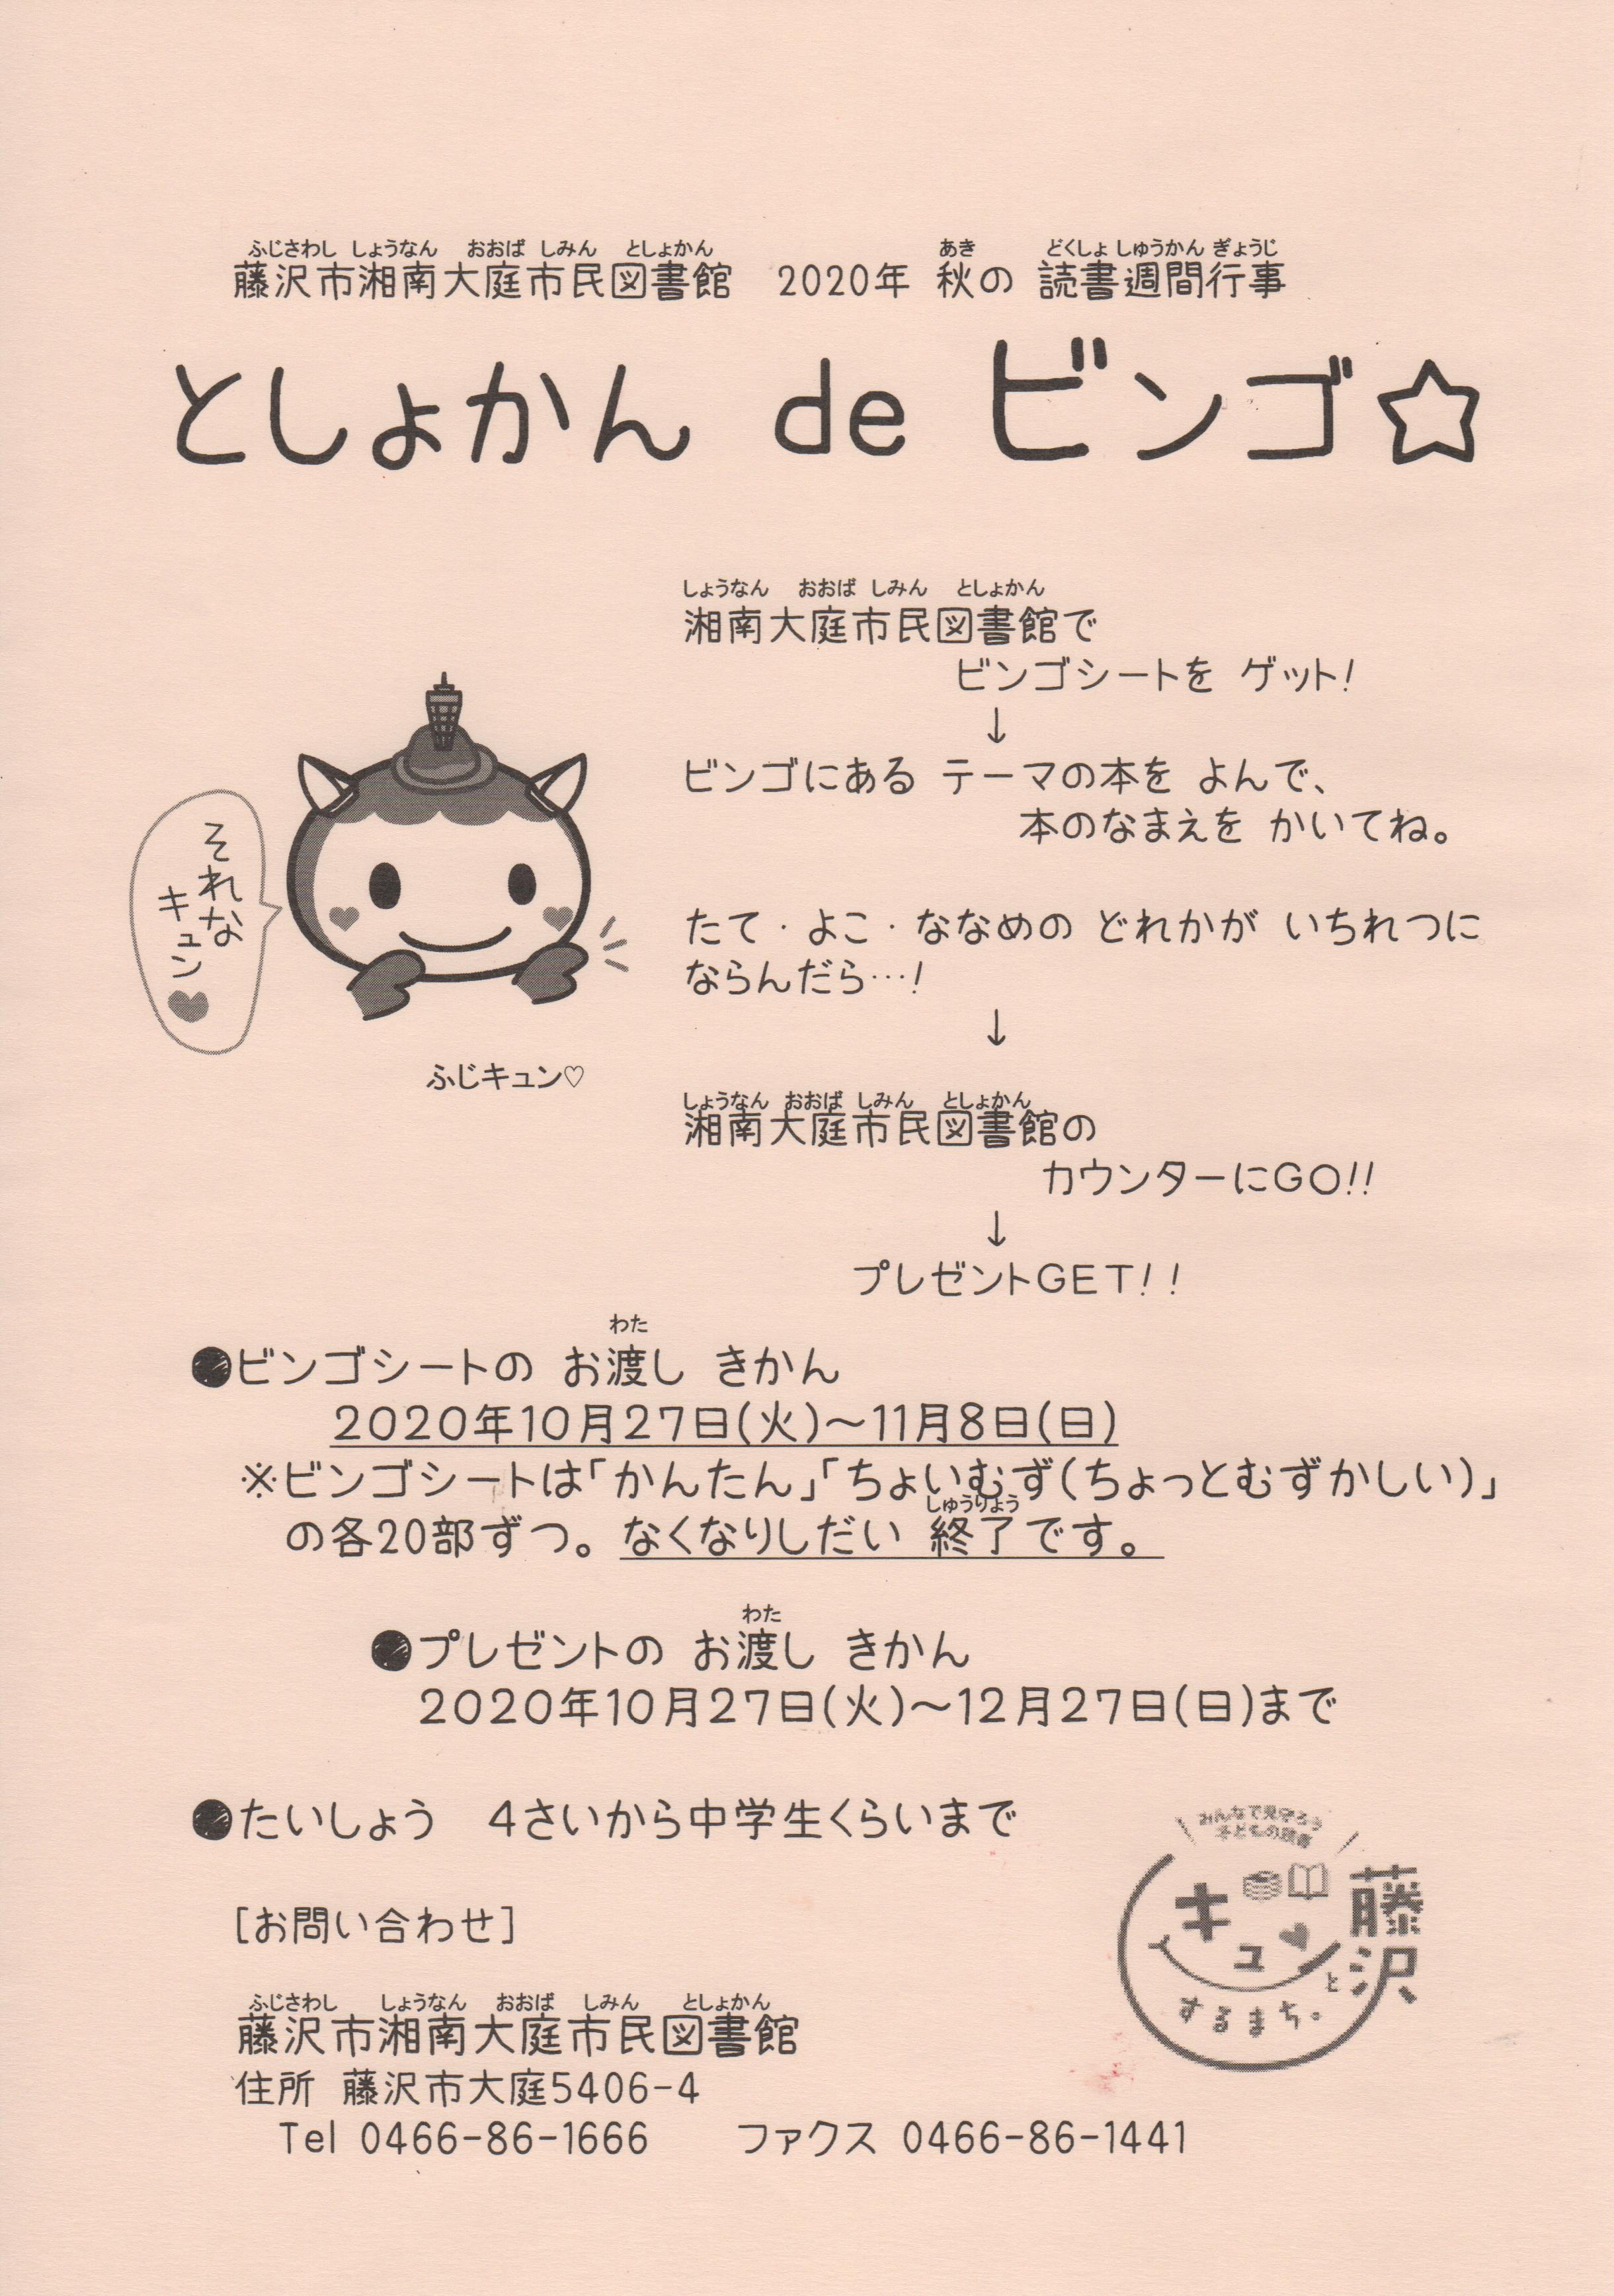 ふじさわし しょうなん おおば しみん としょかん あき どくしょ しゅうかん ぎょうじ
藤沢市湘南大庭市民図書館 2020年 秋の 読書週間行事
としょかん de ビンゴ☆
しょうなん おおば しみん としょかん
湘南大庭市民図書館で
ビンゴシートを ゲット!
↓
ビンゴにある テーマの本を よんで、
本のなまえを かいてね。
たて・よこ・ななめの どれかが いちれつに
ならんだら…!
↓
しょうなん おおば しみん としょかん
湘南大庭市民図書館の
カウンターにGO!!
↓
プレゼントGET!!
それな
キュン♥
ふじキュン♡
わた
●ビンゴシートの お渡し きかん
2020年10月27日(火)~11月8日(日)
※ビンゴシートは「かんたん」「ちょいむず(ちょっとむずかしい)」
しゅうりょう
の各20部ずつ。なくなりしだい 終了です。
わた
●プレゼントの お渡し きかん
2020年10月27日(火)~12月27日(日)まで
●たいしょう 4さいから中学生くらいまで
みんなで見守ろう
子どもの読書
キュンと
するまち。
藤沢
[お問い合わせ]
ふじさわし しょうなん おおば しみん としょかん
藤沢市湘南大庭市民図書館
住所 藤沢市大庭5406-4
Tel 0466-86-1666 ファクス 0466-86-1441